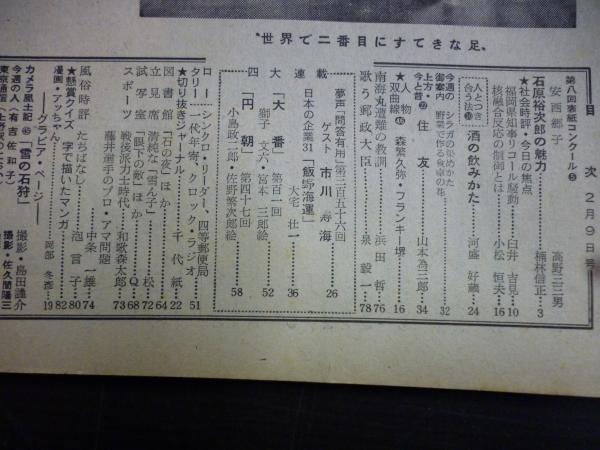 〝世界で二番目にすてきな足〟
目次 2月9日号
第八回表紙コンクール⑤
安西郷子 高野三三男
石原裕次郎の魅力 楠林信正 3
★社会時評・今日の焦点
福岡県知事リコール騒動 臼井吉見 10
核融合反応の制御とは 小松恒夫 16
人とつき合う法⑩ 酒の飲みかた 河盛好蔵 24
今週の御案内
カシラガの染めかた
野菜で作る食卓の花 32
上方・今と昔㉒ 住友 山本為三郎 34
★人物双曲線㊻ 森繁久弥・フランキー堺 16
南海丸遭難の教訓 浜田哲 76
歌う郵政大臣 泉毅一 78
夢声・問答有用 第三百五十六回
ゲスト 市川寿海 26
連載
日本の企業31 「飯野海運」 大宅壮一 36
「大番」 第百一回
獅子文六・宮本三郎絵 52
「円朝」 第四十七回
小島政二郎・佐野繁次郎絵 58
ロータリー
シンクロ・リーダー、四等郵便局
一代年寄、クロック・ラジオ 51
★切り抜きジャーナル 千代紙 22
図書館 「石の夜」ほか 64
立見席 清純な「雪ん子」 松 72
試写室 「眼下の敵」ほか Q 68
スポーツ
戦後派力士時代 和歌森太郎 73
藤井選手のプロ・アマ問題
中条一雄 74
風俗時評 たちばなし 泡言子 80
★懸賞クイズ 字で描いたマンガ 82
漫画・アッちゃん 岡部冬彦 19
――グラビア・ページ――
カメラ風土記㊵ 「雪の石狩」 撮影・島田謹介
今週の人(有吉佐和子) 撮影・佐久間陽三